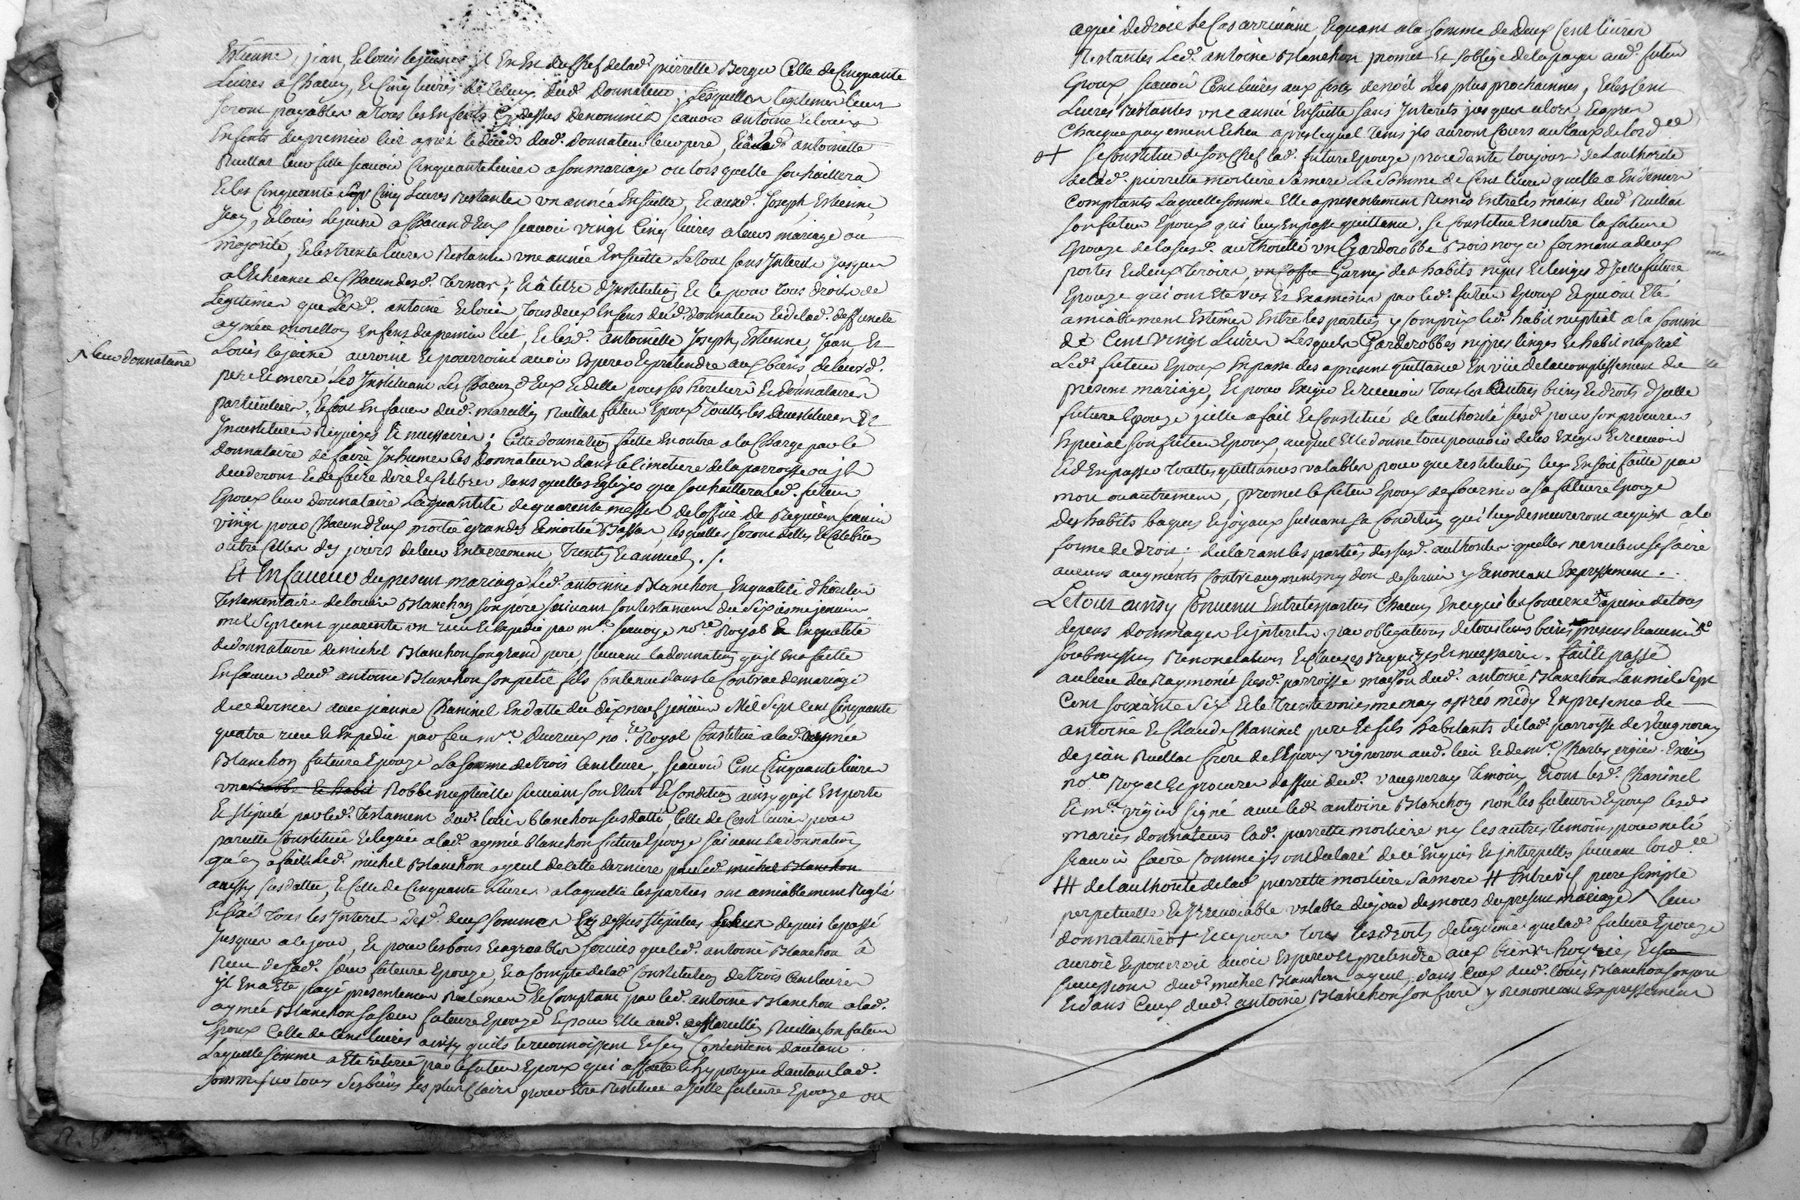 Estienne, jean, et louis lejeune et en st du chef de lad. pierrette Berger Celle de Cinquante
Livres a Chacun, et Cinq livres de Celuy dud. Donnateur; Lesquelles legitimes leur
seront payables a tous les enfants Cy dessus denommés scavoir antoine et louis
Enfants du premier lict après le decedz dud. Donnateur leur pere, et a lad. antoinette
Ruillat leur fille scavoir Cinquante livres a son mariage ou lors quelle souhaittera
et les Cinquante Cinq Livres restantes un année ensuitte, et auxd. Joseph, Estienne,
Jean, et louis lejeune a Chacun d'Eux scavoir vingt Cinq livres a leurs mariage ou
majorité, et les trente livres Restantes une année Ensuitte Le tout sans Interest jusques
a l'Echeance de Chacun desd. termes; et a titre d'Institution et ce pour tous droits de
Legitimes que Lesd. antoine et louis tous deux Enfans dud. donnateur et de lad. deffuncte
aymée morellon Enfans du premier lict, et lesd. antoinette Joseph, Estienne, Jean et
Louis lejeune auroint et pourroint avoir Esperer et pretendre aux biens de leursd.
pere et mere Les Instituant Les Chacun d'Eux et delle pour ses heritiers et Donnataires
^ leur donnataire
particuliers, et sont En faveur dud. marcellin Ruillat futur Epoux ^ touttes les devestitures et
Investitures Requises et necessaires; Cette donnation faitte En outre a la Charge par le
donnataire de faire Inhumer les Donnateurs dans le Cimetiere de la parroisse ou jls
decederont et de faire dire et Celebrer dans quelles Eglises que souhaittera led. futeur
Epoux leur donnataire La quantité de quarante messes de loffice de Requiem scavoir
vingt pour Chacun d'Eux moitié grandes et moitié Basses lesquelles seront dittes et Celebrées
outre Celles des jours de leur Enterrement, Trenten et annuel ./.
Et En faveur du present mariage Led. antoinne Blanchon En qualité d'heritier
Testamentaire de louis Blanchon son pere suivant son testament du Sixieme jenvier
mil sept cent quarante un receu et Expedié par me. Jeauoye nore. Royal et En qualité
de donnataire de michel Blanchon son grand pere suivant la donnation qu'il en a faitte
En faveur dud. antoine Blanchon son petit fils Contenue dans le Contrac de mariage
de ce dernier avec jeanne Chaninel En datte du dix neuf jenvier Mil Sept Cent Cinquante
quatre receu et Expedié par feu me. Ducreux nore. Royal Constitue a lad. aymée
Blanchon futeure Epouze La somme de trois Cent livres, scavoir Cent Cinquante livres
une Robbe nuptialle suivant son Etat et Condition ainsy qu'il Est porté
Et stipulé par led. Testament dud. louis blanchon sus datté, Celle de Cent livres pour
pareille Constituée et leguée a lad. aymée blanchon future Epouze suivant la donnation
qu'en a fait led. michel Blanchon ayeul de cette derniere
aussy sus datté, Et Celle de Cinquante Livres a laquelle les parties ont amiablement Reglé
et fixé tous les Interet desd. deux sommes Cy dessus stipulées depuis le passé
jusques a le jour, Et pour les bons et agreables services que led. antoine Blanchon a
Receu de sad. sœur future Epouze, Et a Compte de lad. Constitution de trois Cent livres
il En a Eté payé presentement Reelement et Comptant par led. antoine Blanchon a lad.
aymée Blanchon sa sœur future Epouze Et pour Elle aud. Marcellin Ruillat son futeur
Epoux Celle de Cent livres ainsy quils le reconnoissent et s'en Contentent d'autant.
Laquelle somme a Eté retirée par le futeur Epoux qui affecte et hypoteque d'autant lad.
somme sur tous Ses biens les plus Clairs pour Etre Restituée a jcelle future Epouze ou
a qui de droit Le Cas arrivant, Et quant a la somme de deux Cent livres
Restantes Led. antoine Blanchon promet et s'oblige de la payer aud. futeur
Epoux, scavoir Cent livres aux festes de noël Les plus prochaines, Et les Cent
Livres Restantes une année Ensuitte sans Interets jusques alors Et apres
Chaque payement Echeu apres lequel tems jls auront Cours au taux de lordce
o+ Se Constitue de son Chef lad. future Epouze procedante toujour de Lauthorité
de lad. pierrette morliere Sa mere La Somme de Cent livres quelle a En deniers
Comptants Laquelle somme Elle a presentement Remis Entre les mains dud. Ruillat
son futeur Epoux qui luy En passe quittance. Se Constitue En outre la future
Epouze de la susd. authorité un Garderobbe Bois noyer fermant a deux
portes et deux tiroirs, Garnis des habits nipes et linges d'jcelle future
Epouze qui ont Eté vus Et Examinés par led. futeur Epoux Et qui ont Eté
amiablement Estimés Entre les parties y Compris led. habit nuptial a la somme
de Cent vingt Livres Lesquels Garderobbes nippes linges et habit nuptial
Led. futeur Epoux En passe des a present quittance En vüe de laccomplissement du
present mariage, Et pour Exiger et recevoir tous les autres biens et droits d'jcelle
future Epouze jcelle a fait et Constitué de l'authorité susd. pour son procureur
Especial son futeur Epoux, auquel Elle donne tout pouvoir de les Exiger et recevoir
et d'En passer touttes quittances valables pour que restitution luy En soit faitte par
mort ou autrement, promet le futeur Epoux de fournir a sa future Epouze
des habits bagues et joyaux suivant sa Condition qui luy demeureront acquis a la
forme de droit; declarants les parties de lasusd. authorité quelles ne veulent se faire
aucuns augments Contre augments ny don de survie y renonceant Expressement.
Le tout ainsy Convenu Entre les parties Chacun En ce qui les Concerne a peine de tous
depens dommages et jnterets. par obligations de tous leurs biens presents et avenir
soubmissions Renonciations et Clauzes Requizes et necessaires. fait Et passé
au lieu du Raymonet susd. parroisse maison dud. antoine Blanchon L'an mil Sept
Cent soixante Six Et le trente unieme may apres midy En presence de
antoine et Claude Chaninel pere et fils habitants de lad. parroisse de Vaugneray
de jean Ruillat frere de l'Epoux vigneron aud. lieu Et de me. Charles vrgier Exerçt
nore. Royal et procureur d'office dud. vaugneray Temoins, dont lesd. Chaninel
Et me. vrgier signé avec led. antoine Blanchon non les futeurs Epoux lesd.
mariés donnateurs lad. pierrette morliere ny les autres temoins pour ne le
scavoir faire comme jls ont declaré de ce Enquis et interpellés suivant lordce
+++ de lauthorité de lad. pierrette morliere sa mere ++ Entrevifs pure simple
perpetuelle et Irrevocable valable du jour des noces du present mariage ^ leur
donnataire o+ et ce pour tous les droits de legitime que lad. future Epouze
auroit et pourroit avoir Esperer et pretendre aux biens hoiries et
successions dud. michel Blanchon ayeul, dans Ceux dud. louis Blanchon son pere
Et dans Ceux dud. antoine Blanchon son frere y renonceant Expressement